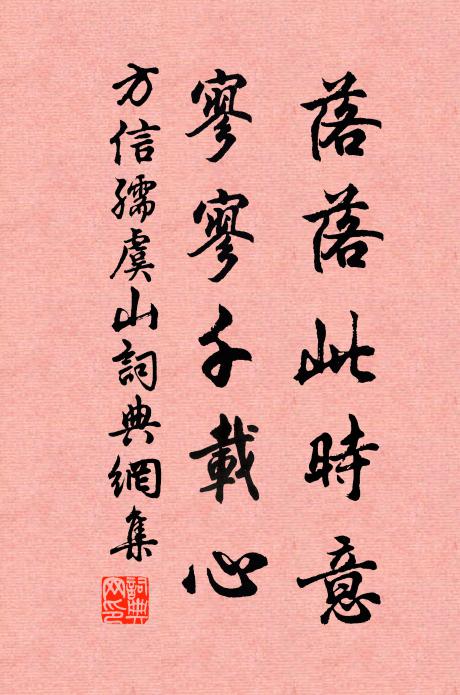 落落此時意
寥寥千載心
方信孺虞山詞典網集
詞典
网印